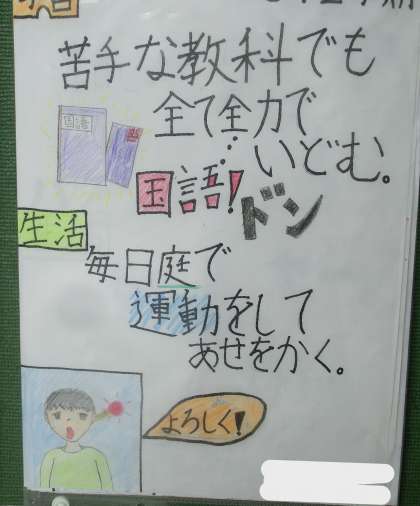 学習
苦手な教科でも
全て全力で
いどむ。
国語
国語!
ドン
生活
毎日庭で
運動をして
あせをかく。
よろしく!